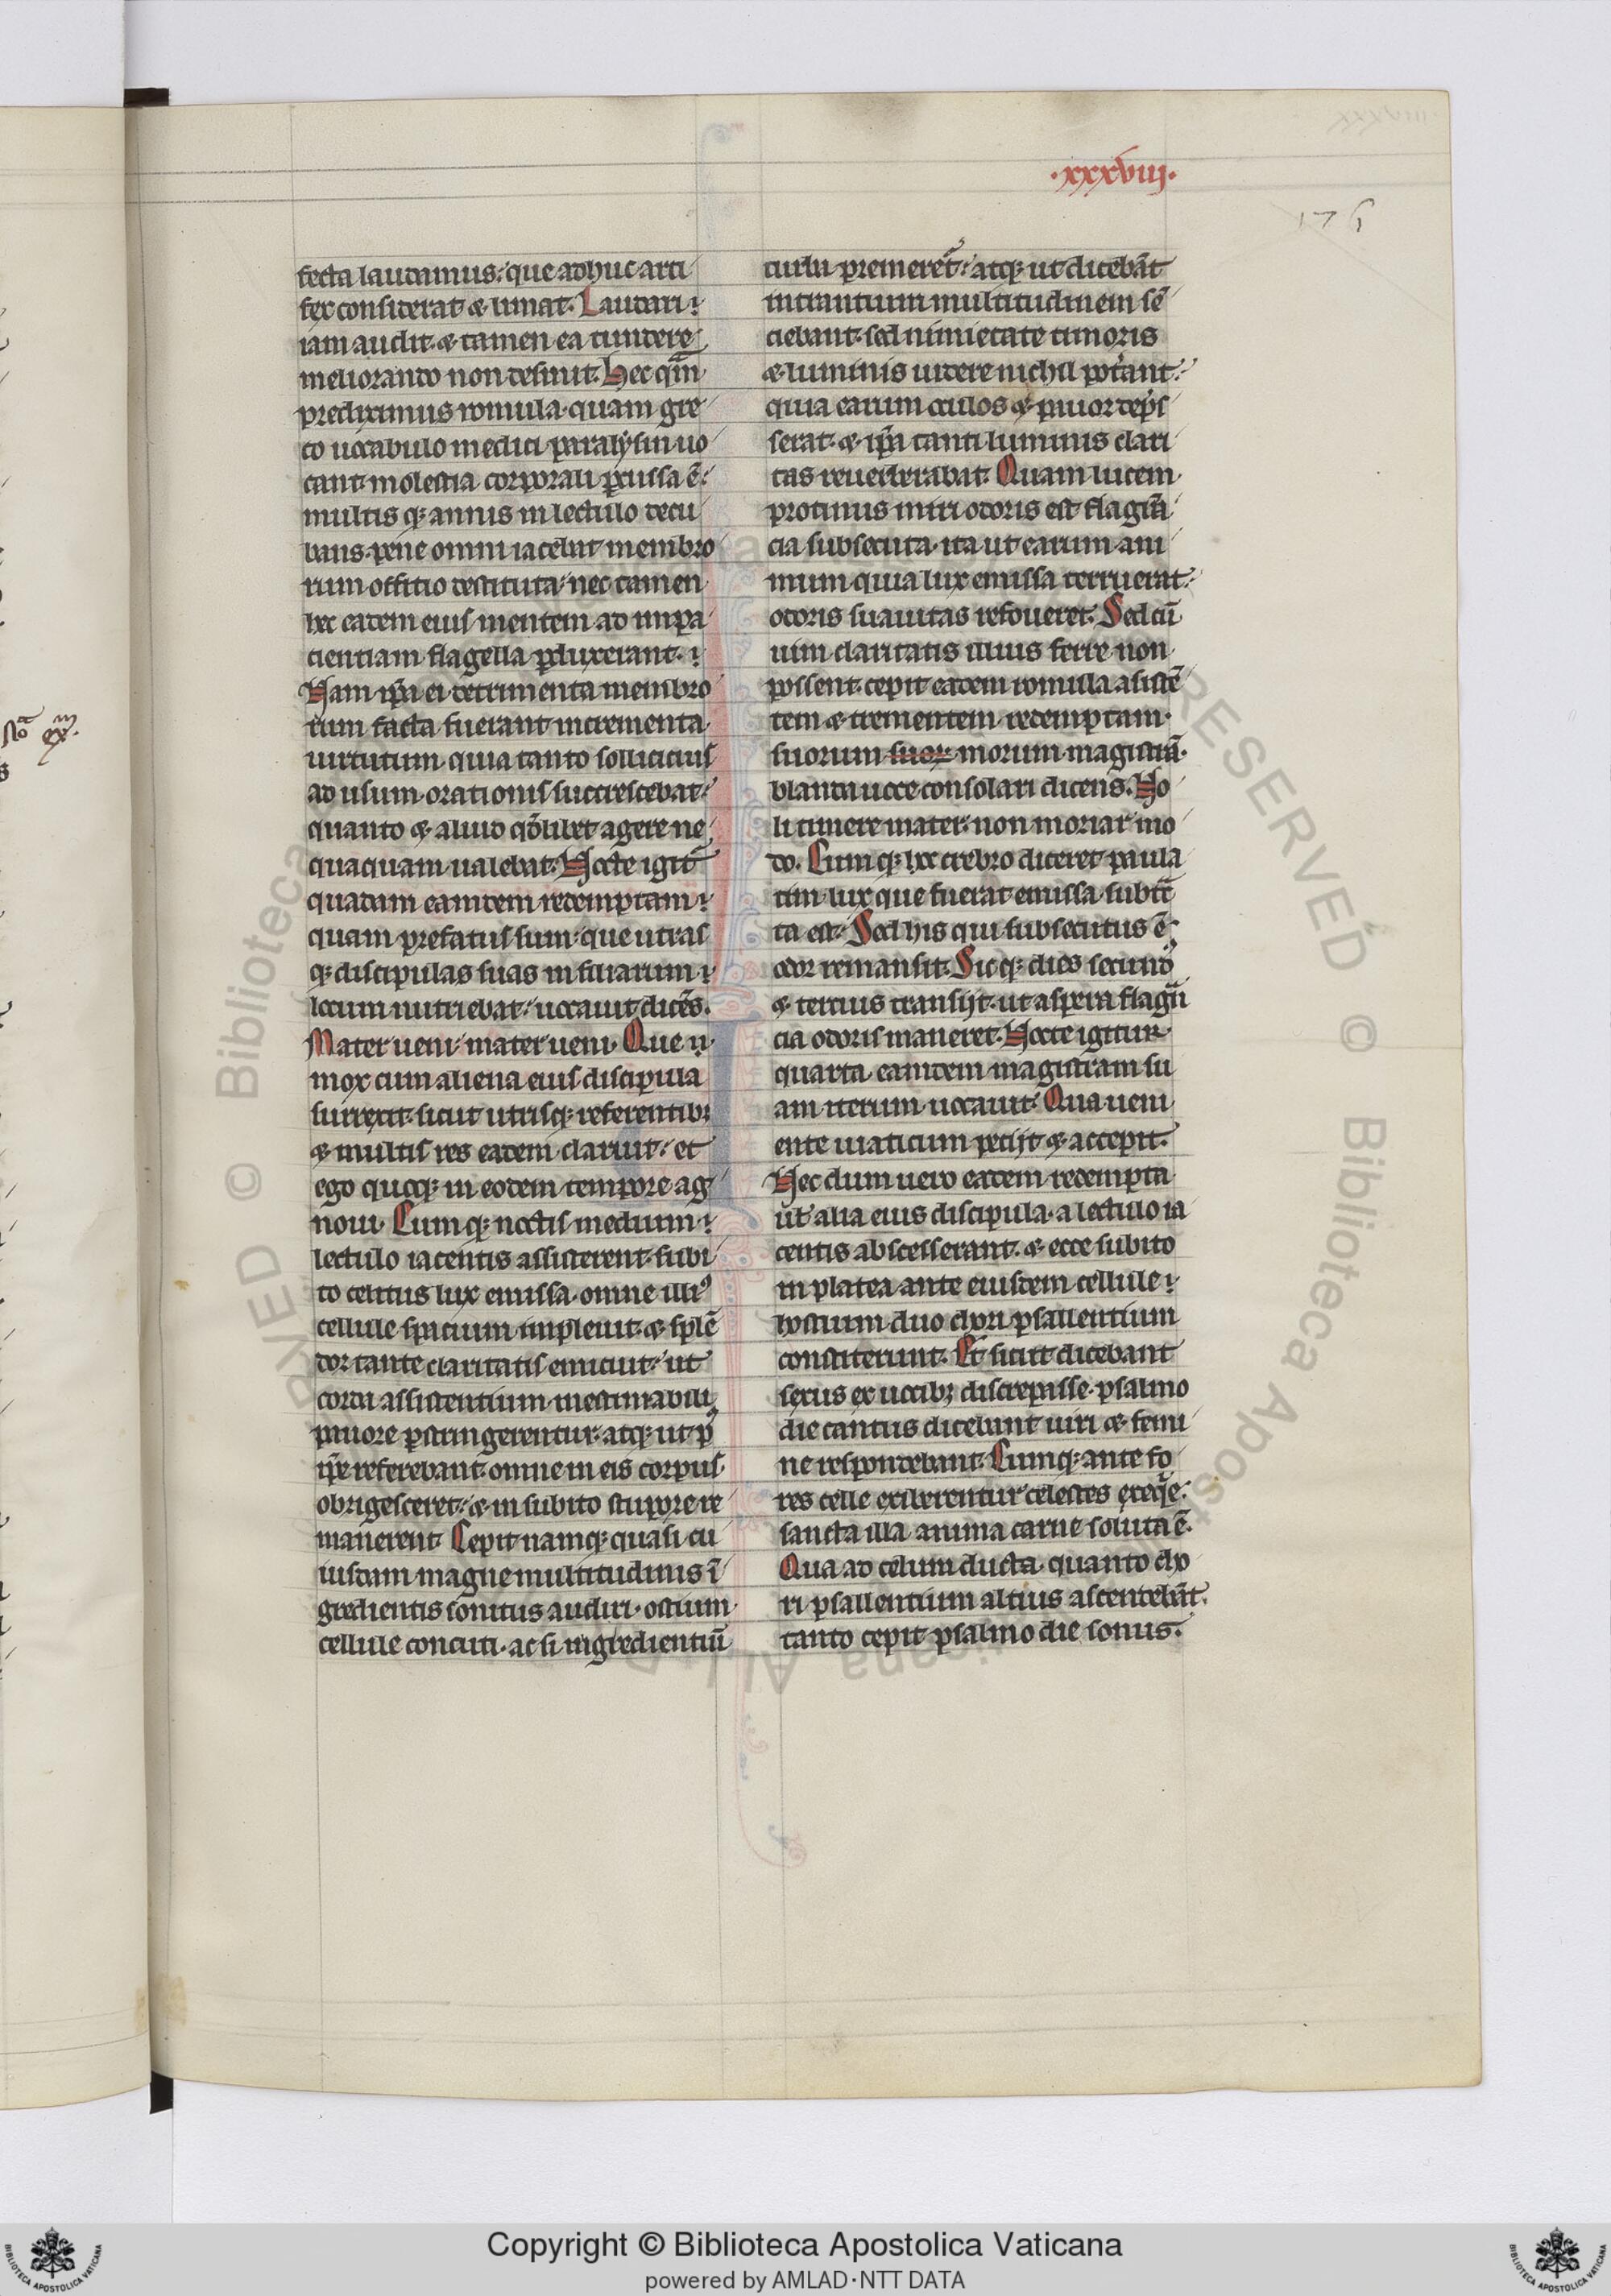 ·xxxviij·
176
fecta laudamus: que adhuc arti
fex considerat & limat. Laudari
iam audit & tamen ea tundere
meliorando non desinit. Hec qm̄
prediximus romula quam gre
co uocabulo medici paralysin uo
cant molestia corporali ꝑcussa ē:
multis q; annis in lectulo decu
bans pene omni iacebat membro
rum offitio destituta: nec tamen
hec eadem eius mentem ad impa
cientiam flagella ꝑduxerant.
Nam ip̄a ei detrimenta membro
rum facta fuerant incrementa
uirtutum quia tanto sollicicius
ad usum orationis succrescebat:
quanto & aliud qd̄libet agere ne
quaquam ualebat. Nocte igit̄
quadam eamdem redemptam
quam prefatus sum: que utras
q; discipulas suas in filiarum
locum nutriebat: uocauit dicēs.
Mater ueni: mater ueni. Que
mox cum aliena eius discipula
surrexit sicut utrisq; referentib;
& multis res eadem claruit: et
ego quoq; in eodem tempore ag
noui. Cum q; noctis medium
lectulo iacentis assisterent subi
to celitus lux emissa omne illiꝰ
cellule spacium impleuit. & splē
dor tante claritatis emicuit: ut
corda assistentium inestimabili
pauore ꝑstringerentur. atq; ut p̄
ip̄e referebant. omne in eis corpus
obrigesceret: & in subito stupore re
manerent Cepit namq; quasi cu
iusdam magne multitudinis ī
gredientis sonitus audiri ostium
cellule concuti. ac si ingredientiū
turba premeret̄: atq; ut dicebāt
intrantium multitudinem sē
ciebant. sed nimietate timoris
& luminis uidere nichil pot̄ant:
quia earum oculos & pauor dep̄s
serat. & ip̄a tanti luminis clari
tas reuerberabat. Quam lucem
protinus miri odoris est flagrā
cia subsecuta. ita ut earum ani
mum quia lux emissa terruerat:
odoris suauitas refoueret. Sed cū
uim claritatis illius ferre non
possent. cepit eadem romulla asistē
tem & trementem redemptam
suorum suor morum magistrā
blanda uoce consolari dicens. No
li timere mater: non moriar mo
do. Cum q; hoc crebro diceret paula
tim lux que fuerat emissa subtr̄
ta est. Sed his qui subsecutus ē
odor remansit. Sic q; dies secundꝰ
& tercius transijt. ut aspera flagrā
cia odoris maneret. Nocte igitur
quarta eamdem magistram su
am iterum uocauit. Qua ueni
ente uiaticum petijt & accepit.
Nec dum uero eadem redempta
ut alia eius discipula a lectulo ia
centis abscesserant. & ecce subito
in platea ante eiusdem cellule
hostium duo chori psallentium
constiterunt. Et sicut dicebant
sexus ex uocib; discrepasse. psalmo
die cantus dicebant uiri & femi
ne respondebant. Cumq; ante fo
res celle exiberentur celestes exeqͥe:
sancta illa anima carne soluta ē.
Qua ad celum ducta quanto cho
ri psallentium altius ascendebāt
tanto cepit psalmo die sonus.
Copyright © Biblioteca Apostolica Vaticana
powered by AMLAD·NTT DATA